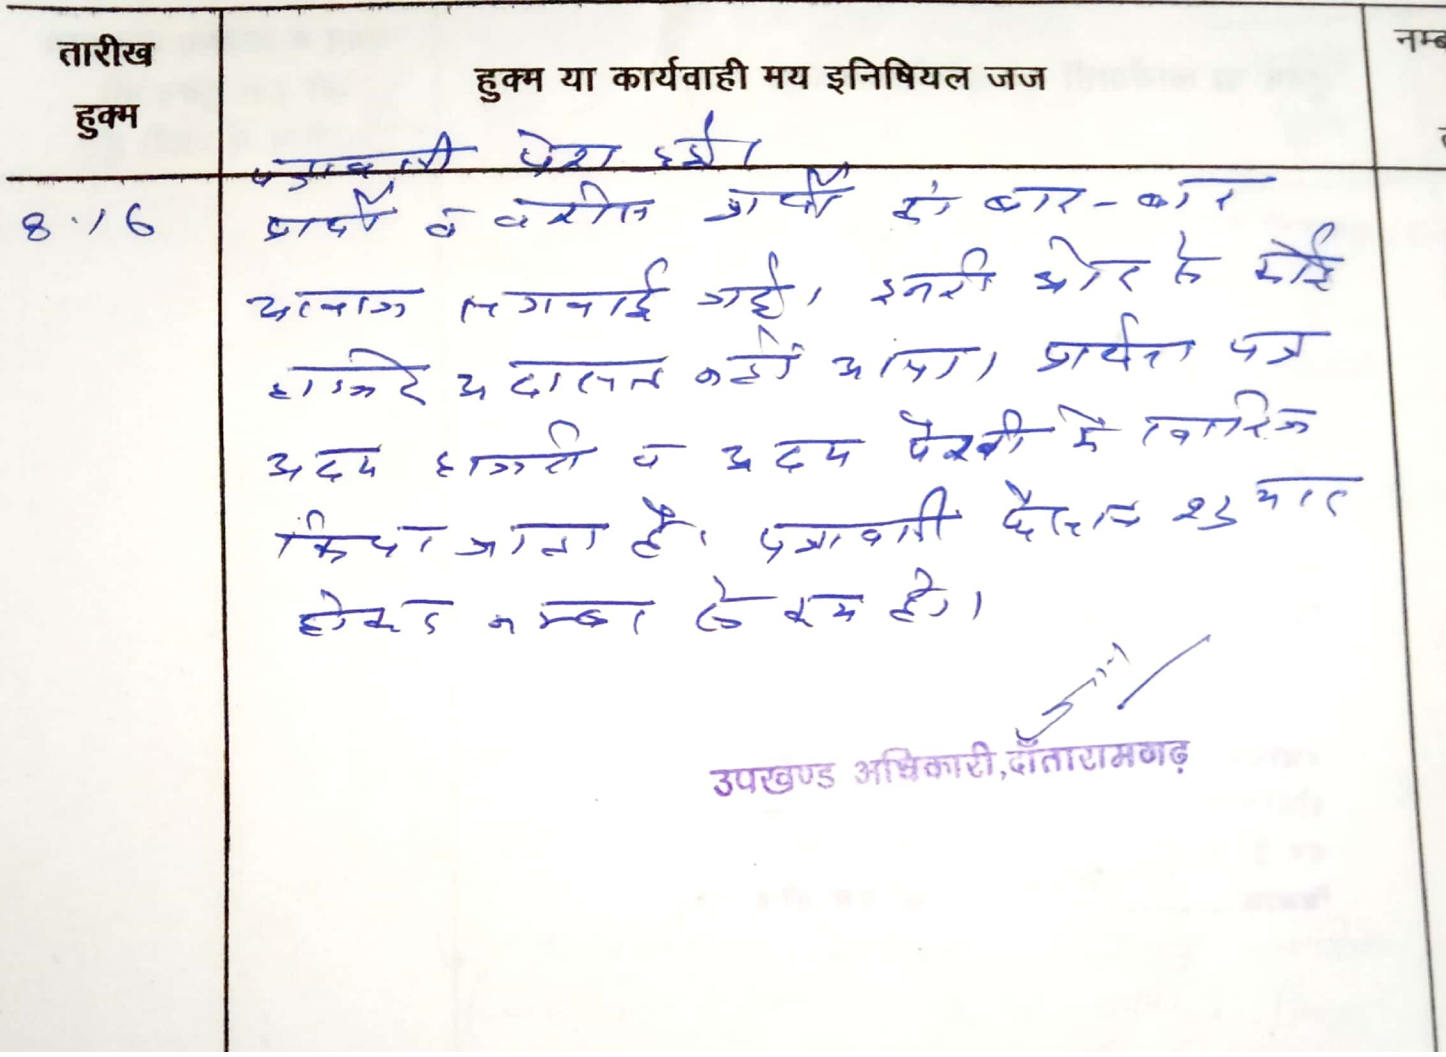 तारीख
हुक्म
हुक्म या कार्यवाही मय इनिषियल जज
नम्ब
पत्रावली पेश हुई।
8.16
प्रार्थी व वकील प्रार्थी को बार-बार
आवाज लगवाई गई। इनकी ओर से कोई
हाजिरे अदालत नहीं आया। प्रार्थना पत्र
अदम हाजरी व अदम पैरवी में खारिज
किया जाता है। पत्रावली फैसल शुमार
होकर नम्बर से कम हो।
उपखण्ड अधिकारी,दाँतारामगढ़